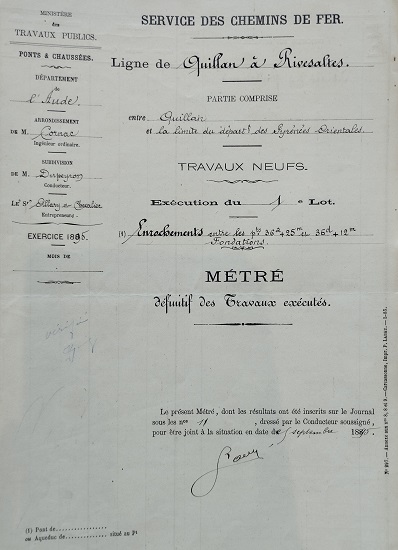 MINISTÈRE
des
TRAVAUX PUBLICS.
PONTS & CHAUSSÉES.
DÉPARTEMENT
de
l'Aude
ARRONDISSEMENT
DE M. Cornac
Ingénieur ordinaire.
SUBDIVISION
DE M. Dupeyron
Conducteur.
LES Srs Olliery & Chevalier
Entrepreneurs
EXERCICE 1895.
MOIS DE
SERVICE DES CHEMINS DE FER.
Ligne de Quillan à Rivesaltes.
PARTIE COMPRISE
entre Quillan
et la limite du départt des Pyrénées Orientales.
TRAVAUX NEUFS.
Exécution du 1er Lot.
(1) Enrochements entre les pts 36d+25m et 36d+12m
Fondations.
MÉTRÉ
définitif des Travaux exécutés.
Le présent Métré, dont les résultats ont été inscrits sur le Journal
sous les nos 11 , dressé par le Conducteur soussigné,
pour être joint à la situation en date du septembre
(1) Pont de
ou Aqueduc de situé au Pt
CARCASSONNE, Impr. P. LABAU.